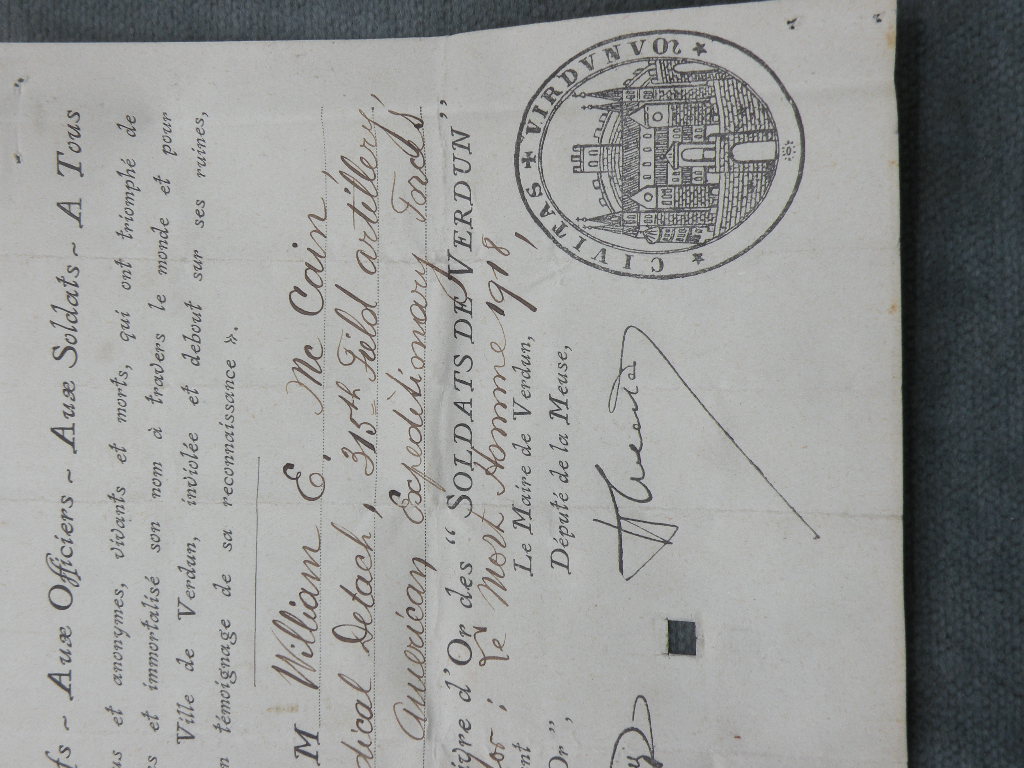 fs ~ Aux Officiers ~ Aux Soldats ~ A Tous
us et anonymes, vivants et morts, qui ont triomphé de
s et immortalisé son nom à travers le monde et pour
Ville de Verdun, inviolée et debout sur ses ruines,
n témoignage de sa reconnaissance ».
M William E. Mc Cain,
dical Detach, 315th Field artillery,
American Expeditionary Forces,
ivre d'Or des “ SOLDATS DE VERDUN ”
for : Le Mort Homme 1918,
ent Le Maire de Verdun,
Or ”, Député de la Meuse,
CIVITAS ✚ VIRDVNVM